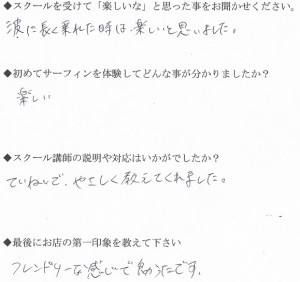 ◆スクールを受けて「楽しいな」と思った事をお聞かせください。
波に長く乗れた時は、楽しいと思いました。
◆初めてサーフィンを体験してどんな事が分かりましたか？
楽しい
◆スクール講師の説明や対応はいかがでしたか？
ていねいで、やさしく教えてくれました。
◆最後にお店の第一印象を教えて下さい
フレンドリーな感じで